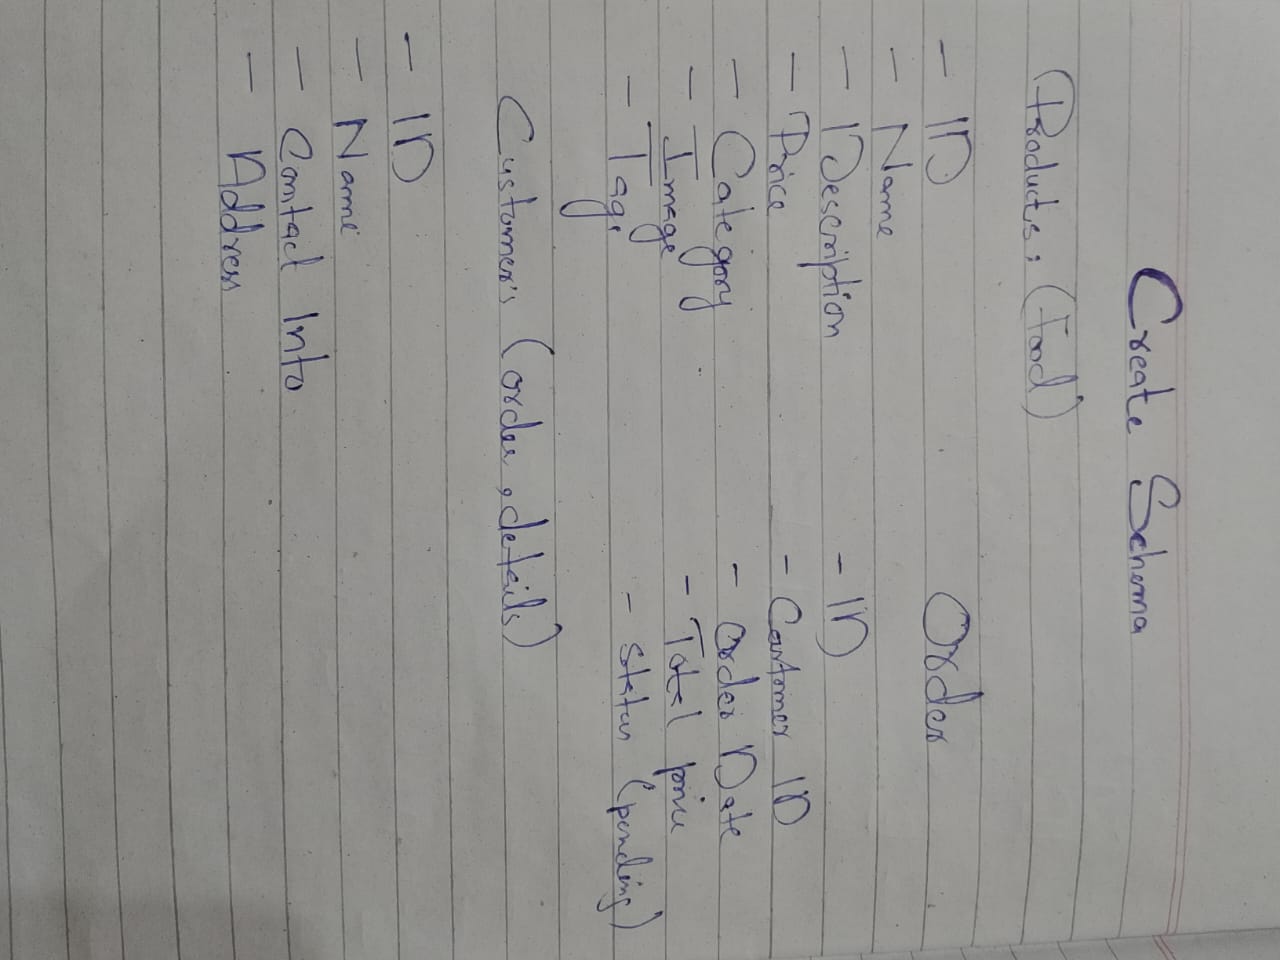 Create Schema
Products, (Food)
- ID
- Name
- Description
- Price
- Category
- Image
- Tags
Order
- ID
- Customer ID
- Order Date
- Total price
- Status (pending)
Customer's (order, details)
- ID
- Name
- Contact Info
- Address